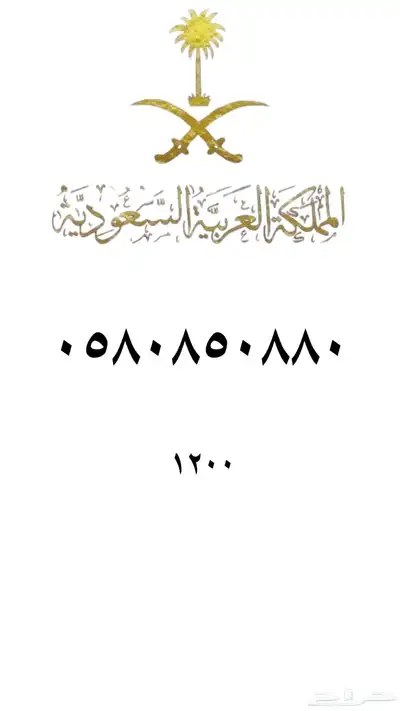 المملكة العربية السعودية
٠٥٨٠٨٥٠٨٨٠
١٢٠٠
حراج